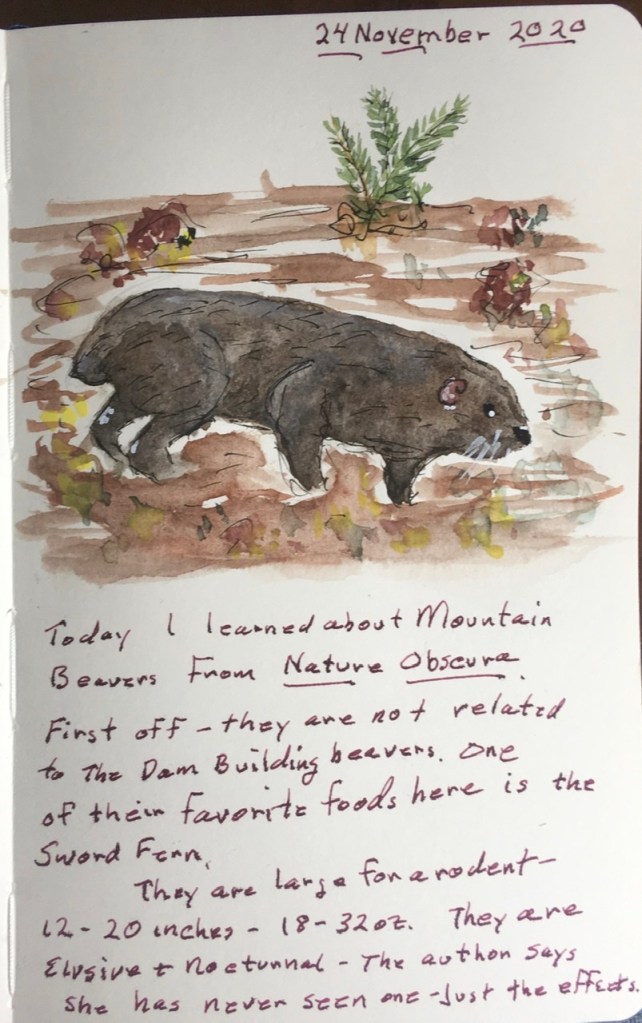 24 November 2020
Today I learned about Mountain
Beavers From Nature Obscura.
First off - they are not related
to The Dam Building beavers. One
of their favorite foods here is the
Sword Fern.
They are large for a rodent -
12 - 20 inches - 18 - 32 oz. They are
Elusive + Nocturnal - The author says
she has never seen one - Just the effects.